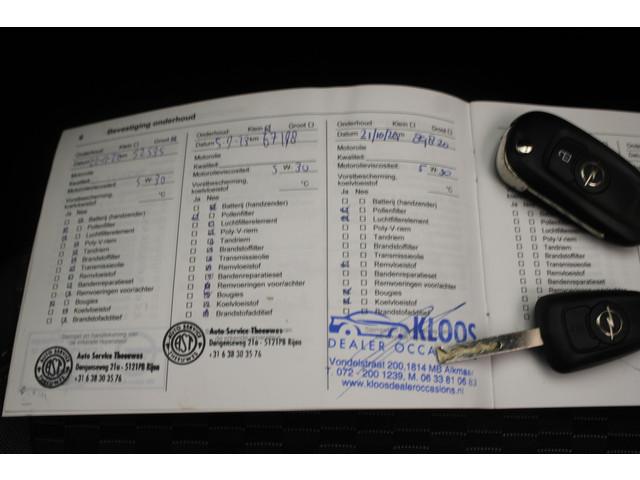 8 Bevestiging onderhoud
Onderhoud: Klein Groot
Datum km 52535
Motorolie
Kwaliteit
Motorolieviscositeit 5 W 30
Vorstbescherming, koelvloeistof °C
Ja Nee
Batterij (handzender)
Pollenfilter
Luchtfilterelement
Poly V-riem
Tandriem
Brandstoffilter
Transmissieolie
Remvloeistof
Bandenreparatieset
Remvoeringen voor/achter
Bougies
Koelvloeistof
Brandstofadditief
AUTO SERVICE
Auto Service Theeuwes
Dongenseweg 21a - 5121PB Rijen
+31 6 38 30 35 76
Onderhoud: Klein Groot
Datum 5-7-23 km 67198
Motorolie
Kwaliteit
Motorolieviscositeit 5 W 30
Vorstbescherming, koelvloeistof °C
Ja Nee
Batterij (handzender)
Pollenfilter
Luchtfilterelement
Poly V-riem
Tandriem
Brandstoffilter
Transmissieolie
Remvloeistof
Bandenreparatieset
Remvoeringen voor/achter
Bougies
Koelvloeistof
Brandstofadditief
AUTO SERVICE
Auto Service Theeuwes
Dongenseweg 21a - 5121PB Rijen
+31 6 38 30 35 76
Onderhoud: Klein Groot
Datum km
Motorolie
Kwaliteit
Motorolieviscositeit 5 W 30
Vorstbescherming, koelvloeistof °C
Ja Nee
Batterij (handzender)
Pollenfilter
Luchtfilterelement
Poly V-riem
Tandriem
Brandstoffilter
Transmissieolie
Remvloeistof
Bandenreparatieset
Remvoeringen voor/achter
Bougies
Koelvloeistof
Brandstofadditief
KLOOS
DEALER OCCA
Vondelstraat 200, 1814 MB Alkmaar
T 072 - 200 1239, M. 06 33 81 06 83
www.kloosdealeroccasions.nl